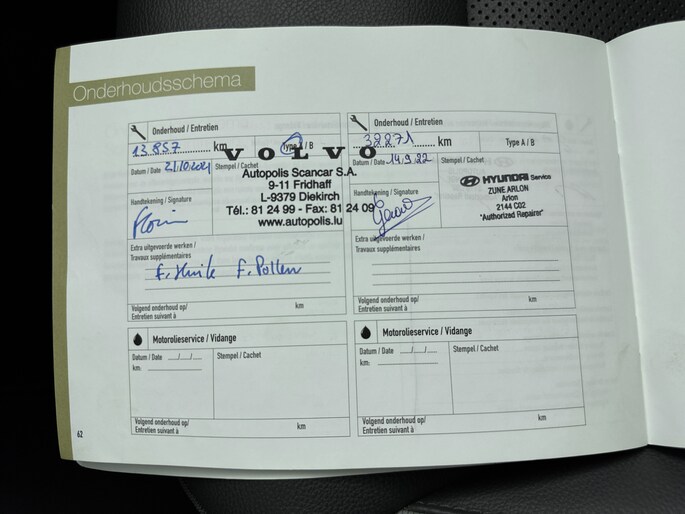 Onderhoudsschema
Onderhoud / Entretien
13.857 km Type A / B
Datum / Date 21/10/2021 Stempel / Cachet
VOLVO
Autopolis Scancar S.A.
9-11 Fridhaff
L-9379 Diekirch
Tél.: 81 24 99 - Fax: 81 24 09
www.autopolis.lu
Handtekening / Signature
Extra uitgevoerde werken /
Travaux supplémentaires
F. Huile F. Pollen
Volgend onderhoud op/
Entretien suivant à km
Onderhoud / Entretien
32271 km Type A / B
Datum / Date 14.9.22 Stempel / Cachet
HYUNDAI Service
ZUNE ARLON
Arlon
2144 C02
"Authorized Repairer"
Handtekening / Signature
Extra uitgevoerde werken /
Travaux supplémentaires
Volgend onderhoud op/
Entretien suivant à km
Motorolieservice / Vidange
Datum / Date __/__/__ Stempel / Cachet
km:
Volgend onderhoud op/
Entretien suivant à km
Motorolieservice / Vidange
Datum / Date __/__/__ Stempel / Cachet
km:
Volgend onderhoud op/
Entretien suivant à km
62